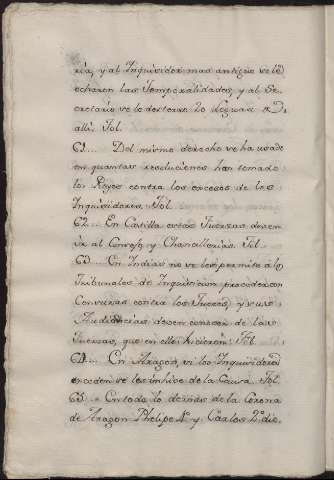 ria, y al Inquisidor mas antiguo se le
echaron las Temporalidades, y al Se-
cretario se le desterro 20 leguas de
alli. Fol.
61.... Del mismo derecho se ha usado
en quantas resoluciones han tomado
los Reyes contra los excesos de los
Inquisidores. Fol.
62... En Castilla estas Fuerzas deven
ir al Consejo, y Chancillerias. Fol.
63.... En Indias no se les permite à los
Tribunales de Inquisicion procedan con
Censuras contra los Jueces, y sus
Audiencias deven conocer de las
fuerzas, que en ello hicieren. Fol.
64.... En Aragon, si los Inquisidores
exceden se les inhive de la Causa. Fol.
65... En todo lo demas de la Corona
de Aragon Phelipe 4º y Carlos 2º die-